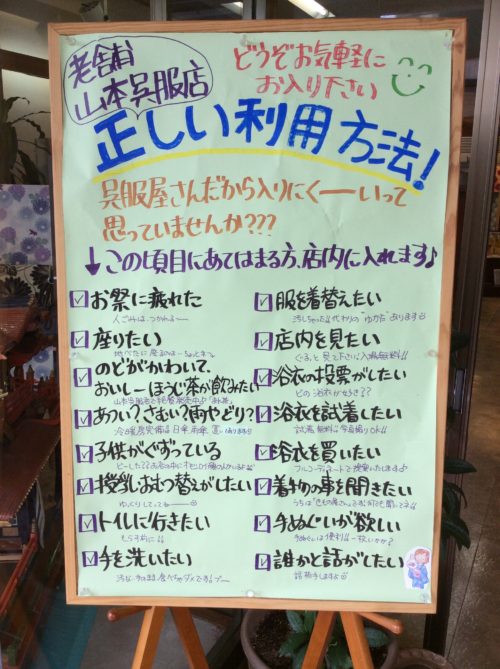 老舗
山本呉服店
どうぞお気軽に
お入り下さい
正しい利用方法!
呉服屋さんだから入りにくーーいって
思っていませんか???
↓この項目にあてはまる方、店内に入れます♪
お祭に疲れた
人ごみは、つかれる〜
座りたい
のどがかわいて、
おいしーほうじ茶が飲みたい
あつい?さむい?雨やどり?
子供がぐずっている
授乳、おむつ替えがしたい
ゆっくりしてってね〜
トイレに行きたい
もらす前に!!
手を洗いたい
服を着替えたい
店内を見たい
浴衣の投票がしたい
どの浴衣が好き??
浴衣を試着したい
浴衣を買いたい
着物の事を聞きたい
手ぬぐいが欲しい
手ぬぐいは便利!!一枚いかが?
誰かと話がしたい
話相手しますよ